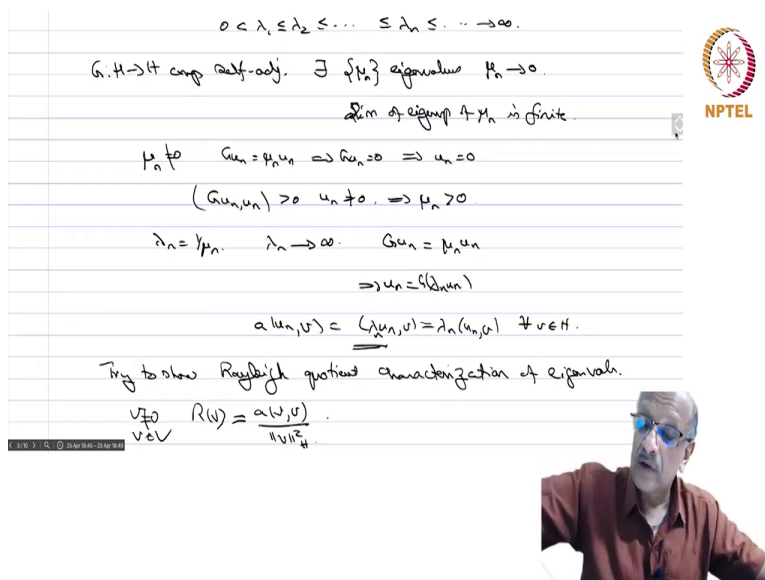 0 < λ₁ ≤ λ₂ ≤ ⋯ ≤ λₙ ≤ ⋯ → ∞.
G: H → H comp self-adj. ∃ {μₙ} eigenvalues μₙ → 0.
Dim of eigensp of μₙ is finite.
NPTEL
μₙ ≠ 0 Guₙ = μₙuₙ ⇒ Guₙ = 0 ⇒ uₙ = 0
(Guₙ, uₙ) > 0 uₙ ≠ 0. ⇒ μₙ > 0
λₙ = 1/μₙ. λₙ → ∞. Guₙ = μₙuₙ
⇒ uₙ = G(λₙuₙ)
a(uₙ, v) = (λₙuₙ, v) = λₙ(uₙ, v) ∀ v ∈ H.
Try to show Rayleigh quotient characterization of eigenvals.
v ≠ 0 R(v) = a(v, v) / ‖v‖²_H.
v ∈ V
3/10 25 Apr 18:45 – 25 Apr 18:49